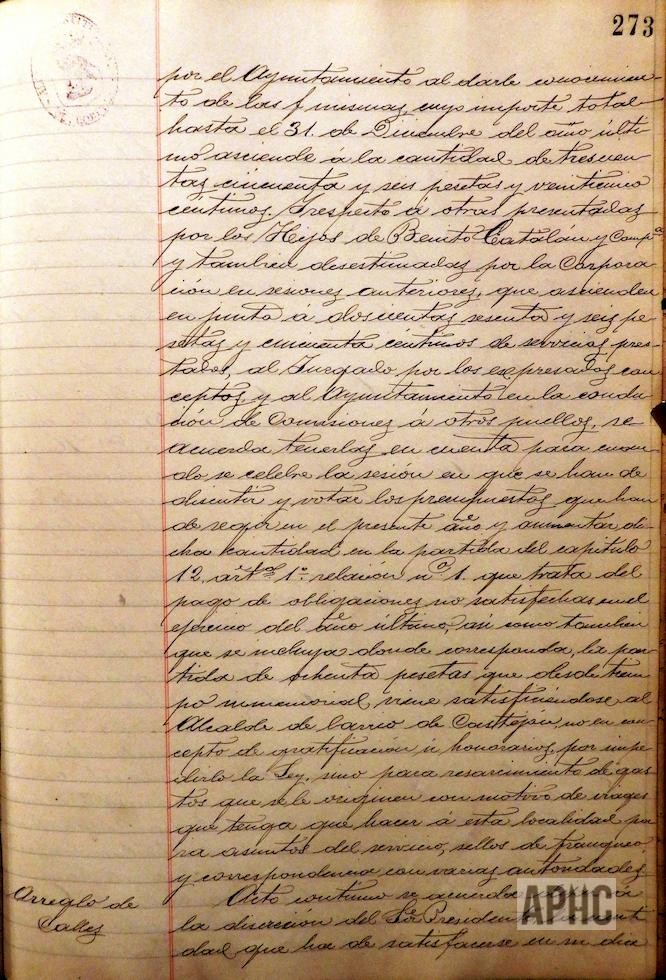 273
por el Ayuntamiento al darle conocimien
to de las mismas, cuyo importe total
hasta el 31 de Diciembre del año últi
mo asciende á la cantidad de trescien
tas cincuenta y seis pesetas y veinticinco
céntimos. Y respecto á otras presentadas
por los Hijos de Benito Catalán y Compª
y tambien desestimadas por la Corpora
ción en sesiones anteriores, que ascienden
en junto á doscientas sesenta y seis pe
setas y cincuenta céntimos de servicios pres-
tados, al Juzgado por los expresados con
ceptos y al Ayuntamiento en la conduc
ción de Comisiones á otros pueblos, se
acuerda tenerlas en cuenta para cuan
do se celebre la sesión en que se han de
discutir y votar los presupuestos que han
de regir en el presente año y aumentar di
cha cantidad en la partida del capitulo
12, artº 1º relación nº 1. que trata del
pago de obligaciones no satisfechas en el
ejercicio del año último, asi como tambien
que se incluya donde corresponda, la par
tida de ochenta pesetas que desde tiem
po inmemorial, viene satisfaciéndose al
Alcalde de barrio de Castejon, no en con
cepto de gratificación ú honorarios, por impe
dirlo la Ley, sino para resarcimiento de gas
tos que se le originen con motivo de viages
que tenga que hacer á esta localidad pa
ra asuntos del servicio, sellos de franqueo
y correspondencia con varias autoridades
Arreglo de
Calles
Acto continuo se acuerda á
la discreción del Sr Presidente
dad que ha de satisfacerse en su dia
APHC